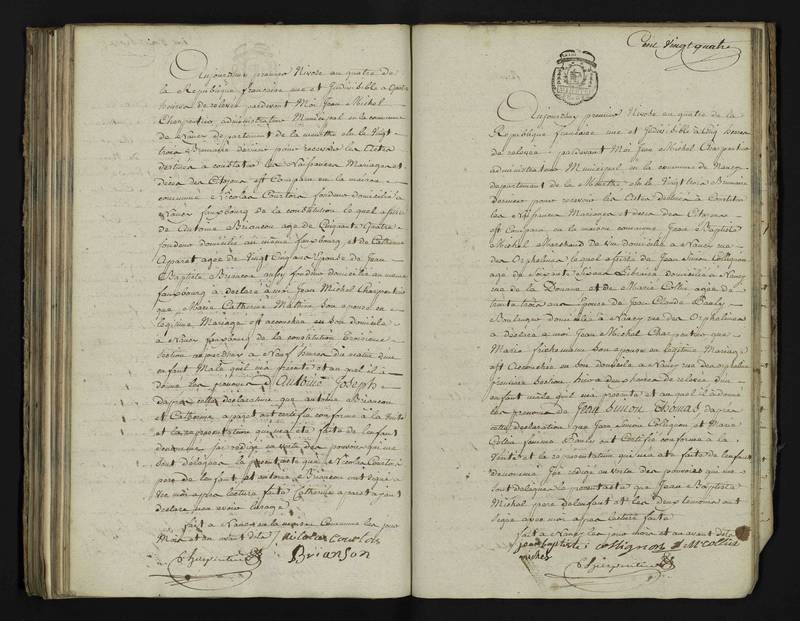 Aujourd'hui premier Nivose an quatre de
la Republique francaise une et Indivisible à
heures de relevée pardevant Moi Jean Michel
Charpentier administrateur Municipal en la commune
de Nancy departement de la meurthe élu le Vingt
trois Brumaire dernier pour recevoir les actes
destinés a constater les Naissances Mariages et
deces des Citoyens est Comparu en la maison
commune Nicolas Courtois fondeur domicilié à
Nancy fauxbourg de la constitution lequel assisté
de Antoine Briancon age de Cinquante Quatre
fondeur domicilié au même fauxbourg et de Catherine
Aparet agee de Vingt Cinq ans Epouse de Jean
Baptiste Briancon aussy fondeur domicilié au meme
fauxbourg à declaré à moi Jean Michel Charpentier
que Marie Catherine son epouse en
legitime Mariage est accouchée en son domicile
à Nancy fauxbourg de la constitution
section aujourd'huy à Neuf heures du matin d'un
enfant Male quil ma presenté et au quel il à
donné les prenoms D'Antoine Joseph
dapres cette declaration que antoine Briancon
et Catherine aparet ont certifié conforme à la verité
et la representation qui ma été faite de lenfant
denommé jai redigé en vertu des pouvoirs qui me
sont délégués le present acte que Nicolas Courtois
pere de lenfant et antoine Briancon ont signé a
vec moi apres lecture faite Catherine aparet ayant
declaré ne savoir
fait à Nancy en la maison Commune les jour
Mois et an avant dits Nicolas courtois
Charpentier Brianson
Cent Vingt quatre
Aujourd'hui premier Nivose an quatre de la
Republique francaise une et Indivisible à Cinq heures
de relevée pardevant Moi Jean Michel Charpentier
administrateur Municipal en la commune de Nancy
departement de la Meurthe élu le Vingt trois Brumaire
dernier pour recevoir les Actes destinés à Constater
les Naissances Mariages et deces des Citoyens
est Comparu en la maison commune Jean Baptiste
Michel Marchand de Vin domicilié à Nancy rue
des Orphelines lequel assisté de Jean Simon Collignon
agé de soixante Libraire domicilié à Nancy
rue de la Douane et de Marie Collin agée de
trente trois ans Epouse de Jean Claude Pauly
Boulanger domicilié à Nancy rue des Orphelines
à déclaré a moi Jean Michel Charpentier que
Marie son epouse en legitime Mariage
est Accouchée en son domicile à Nancy rue des orphelines
premiere section hier a heures de relevée d'un
enfant mâle quil ma presenté et au quel il à donné
les prenoms de Jean Simon Thomas dapres
cette declaration que Jean Simon Collignon et Marie
Collin femme Pauly ont Certifié conforme à la
Vérité et la representation qui ma été faite de lenfant
denommé Jai redigé en vertu des pouvoirs qui me
sont delegués le present acte que Jean Baptiste
Michel pere de lenfant et les deux temoins ont
signé avec moi apres lecture faite
fait à Nancy les jour mois et an avant dits
jean baptiste collignon M Collin
michel
Charpentier